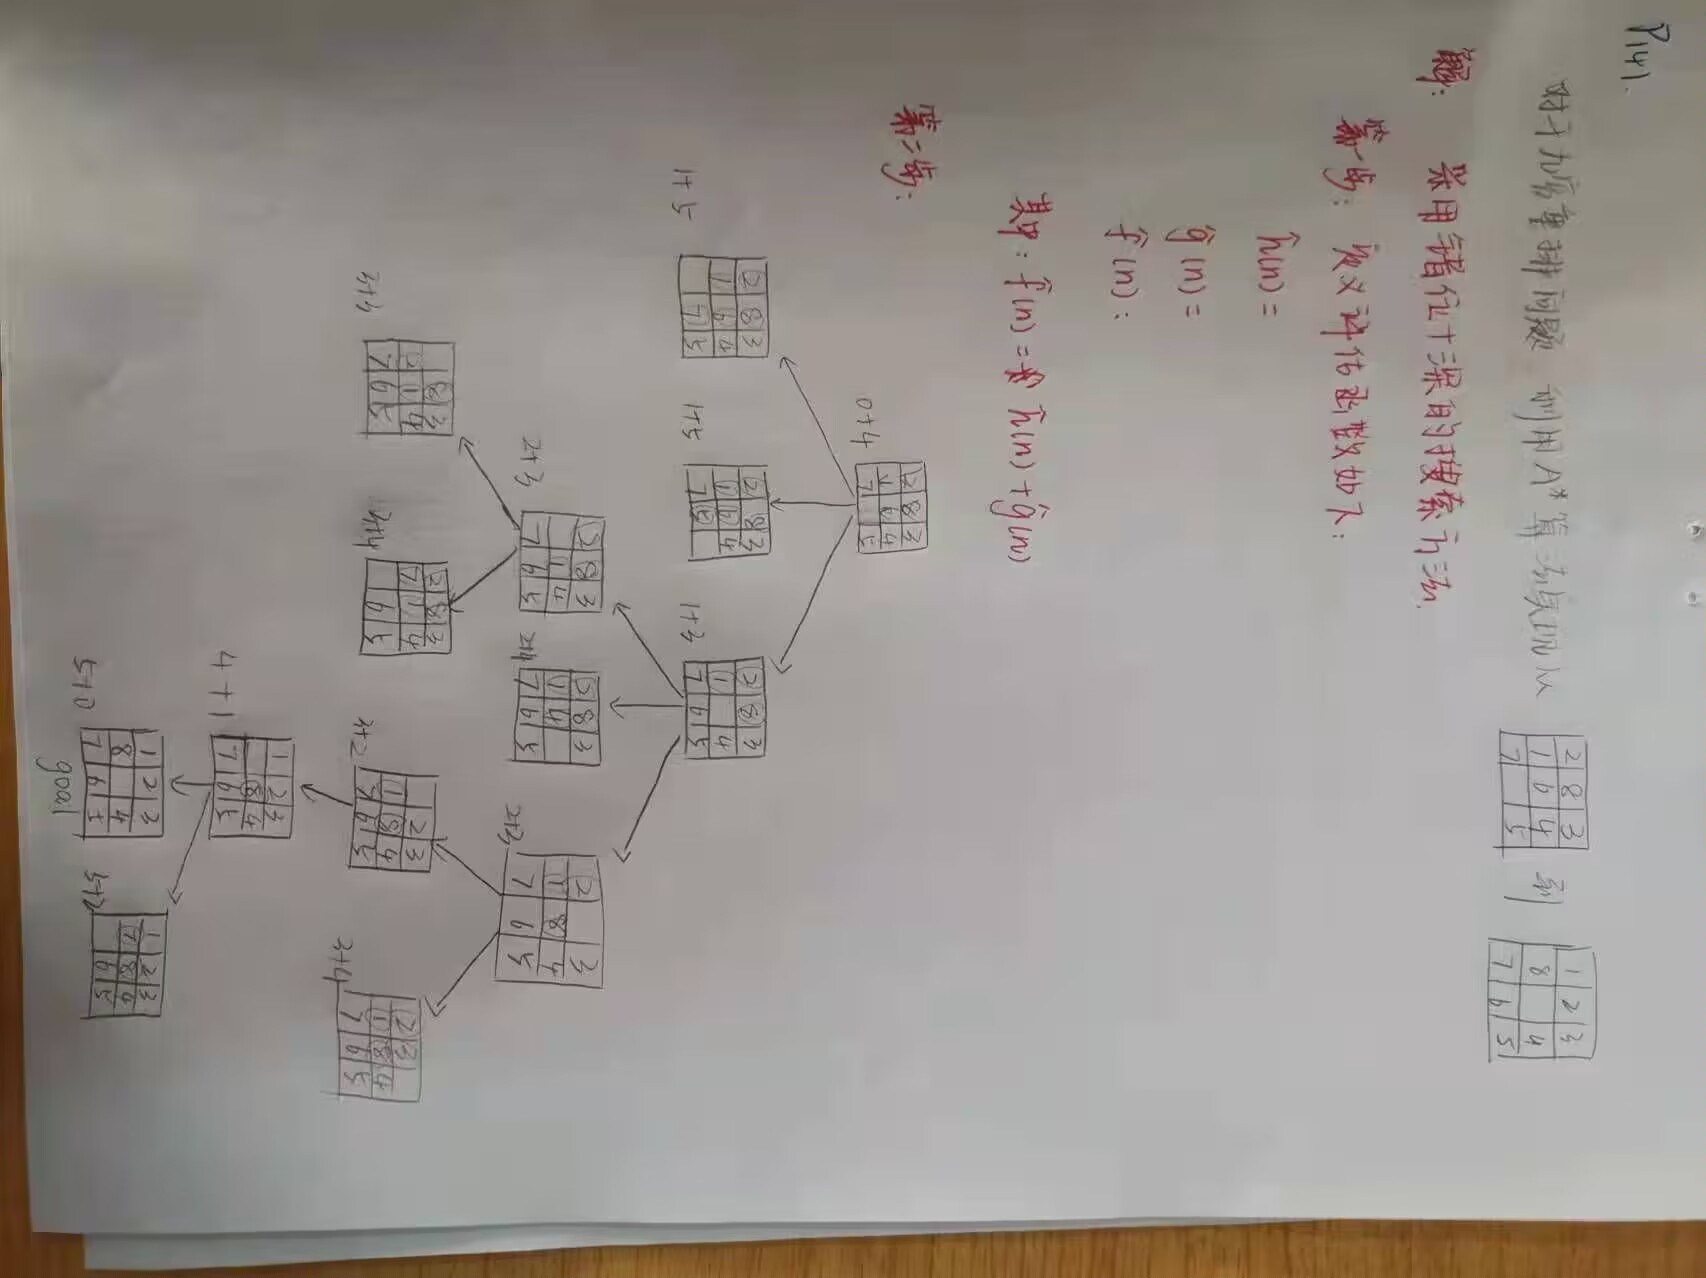 P141.
对于九宫重排问题 利用A*算法实现从 到
2 8 3
1 6 4
7 5
1 2 3
8 4
7 6 5
解: 采用错位+深的搜索方法.
第一步: 定义评估函数如下:
ĥ(n) =
ĝ(n) =
f̂(n):
其中: f̂(n) = ĥ(n) + ĝ(n)
第二步:
2 8 3
1 6 4
7 5
0+4
2 8 3
1 6 4
7 5
1+5
2 8 3
1 6 4
7 5
1+5
2 8 3
1 4
7 6 5
1+3
2 8 3
1 4
7 6 5
2+3
2 8 3
1 4
7 6 5
2+4
2 3
1 8 4
7 6 5
2+3
8 3
2 1 4
7 6 5
3+3
2 8 3
7 1 4
6 5
3+4
2 3
1 8 4
7 6 5
3+2
2 3
1 8 4
7 6 5
3+4
1 2 3
8 4
7 6 5
4+1
1 2 3
8 4
7 6 5
5+0
goal
1 2 3
7 8 4
6 5
5+2